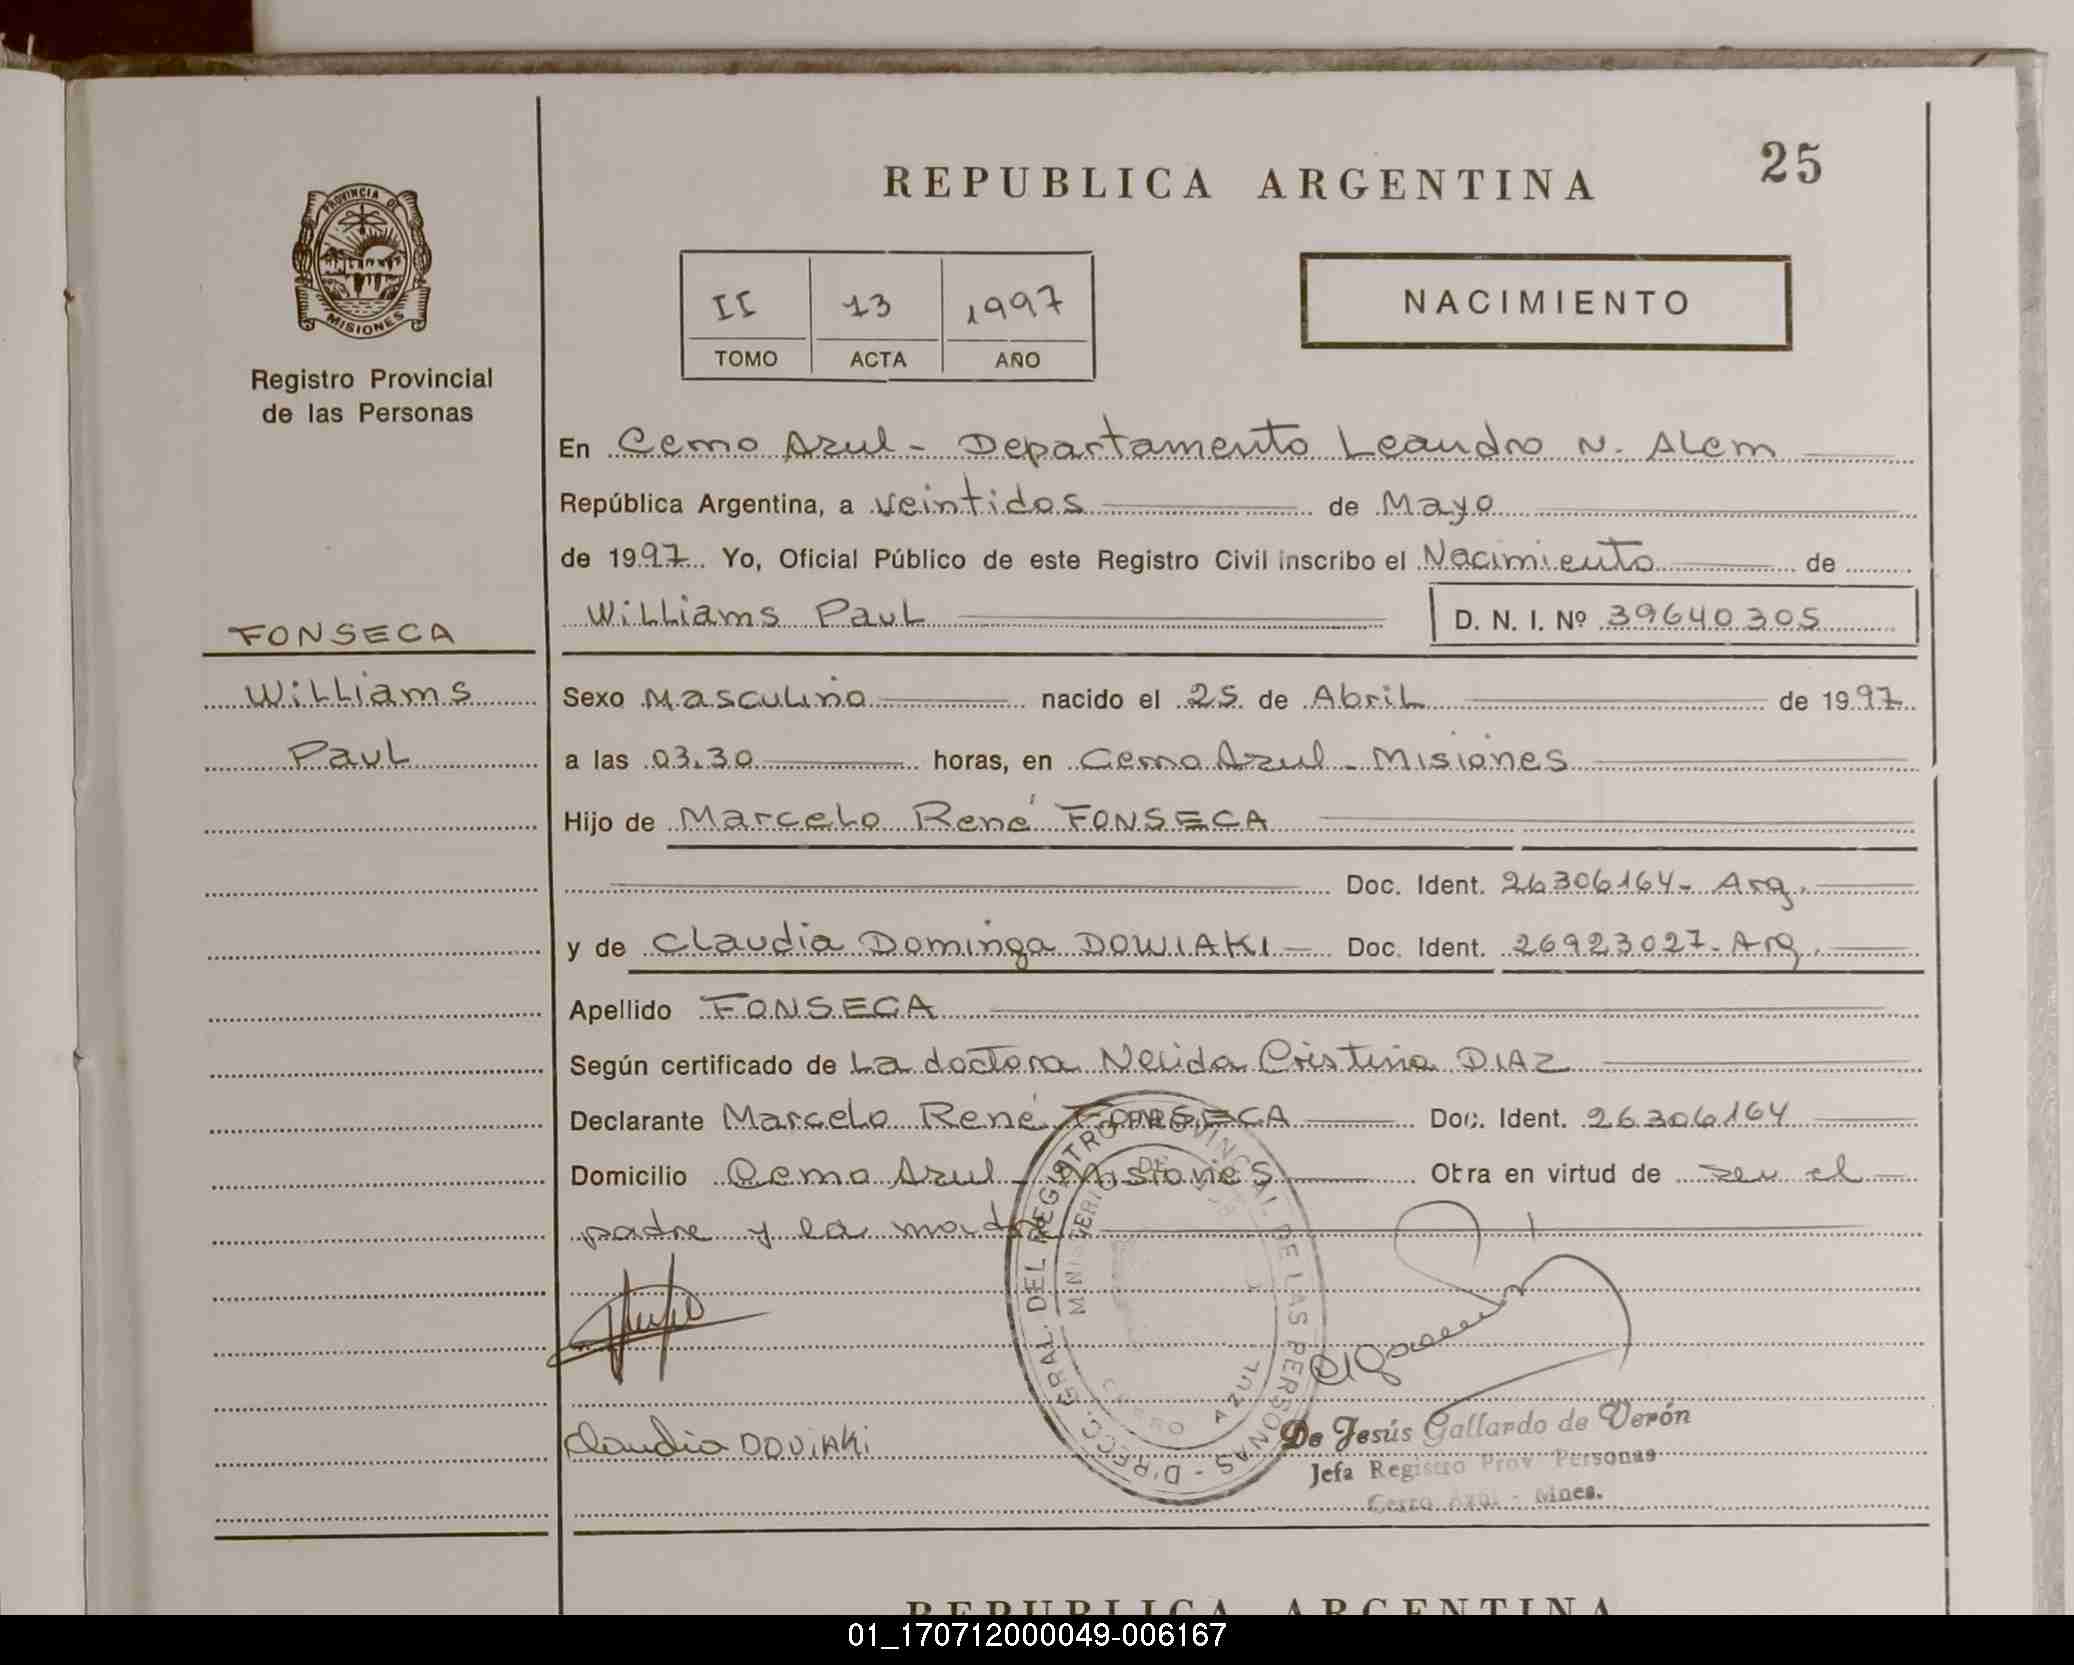 25
REPUBLICA ARGENTINA
PROVINCIA DE
MISIONES
Registro Provincial
de las Personas
II 13 1997
TOMO ACTA AÑO
NACIMIENTO
En Cerro Azul - Departamento Leandro N. Alem
República Argentina, a veintidos de Mayo
de 1997 Yo, Oficial Público de este Registro Civil inscribo el Nacimiento de
Williams Paul D. N. I. Nº 39640305
FONSECA
Williams
Paul
Sexo Masculino nacido el 25 de Abril de 1997
a las 03.30 horas, en Cerro Azul - Misiones
Hijo de Marcelo René FONSECA
Doc. Ident. 26306164- Arg.
y de Claudia Dominga DOWIAKI - Doc. Ident. 26923027- Arg.
Apellido FONSECA
Según certificado de La doctora Nelida Cristina DIAZ
Declarante Marcelo René FONSECA Doc. Ident. 26306164
Domicilio Cerro Azul - Misiones Obra en virtud de ser el
padre y la madre
DIRECC. GRAL. DEL REGISTRO PROVINCIAL DE LAS PERSONAS
MINISTERIO DE
CERRO AZUL
Claudia DOVIAKI
De Jesús Gallardo de Verón
Jefa Registro Prov. Personas
Cerro Azul - Mnes.
REPUBLICA ARGENTINA
01_170712000049-006167